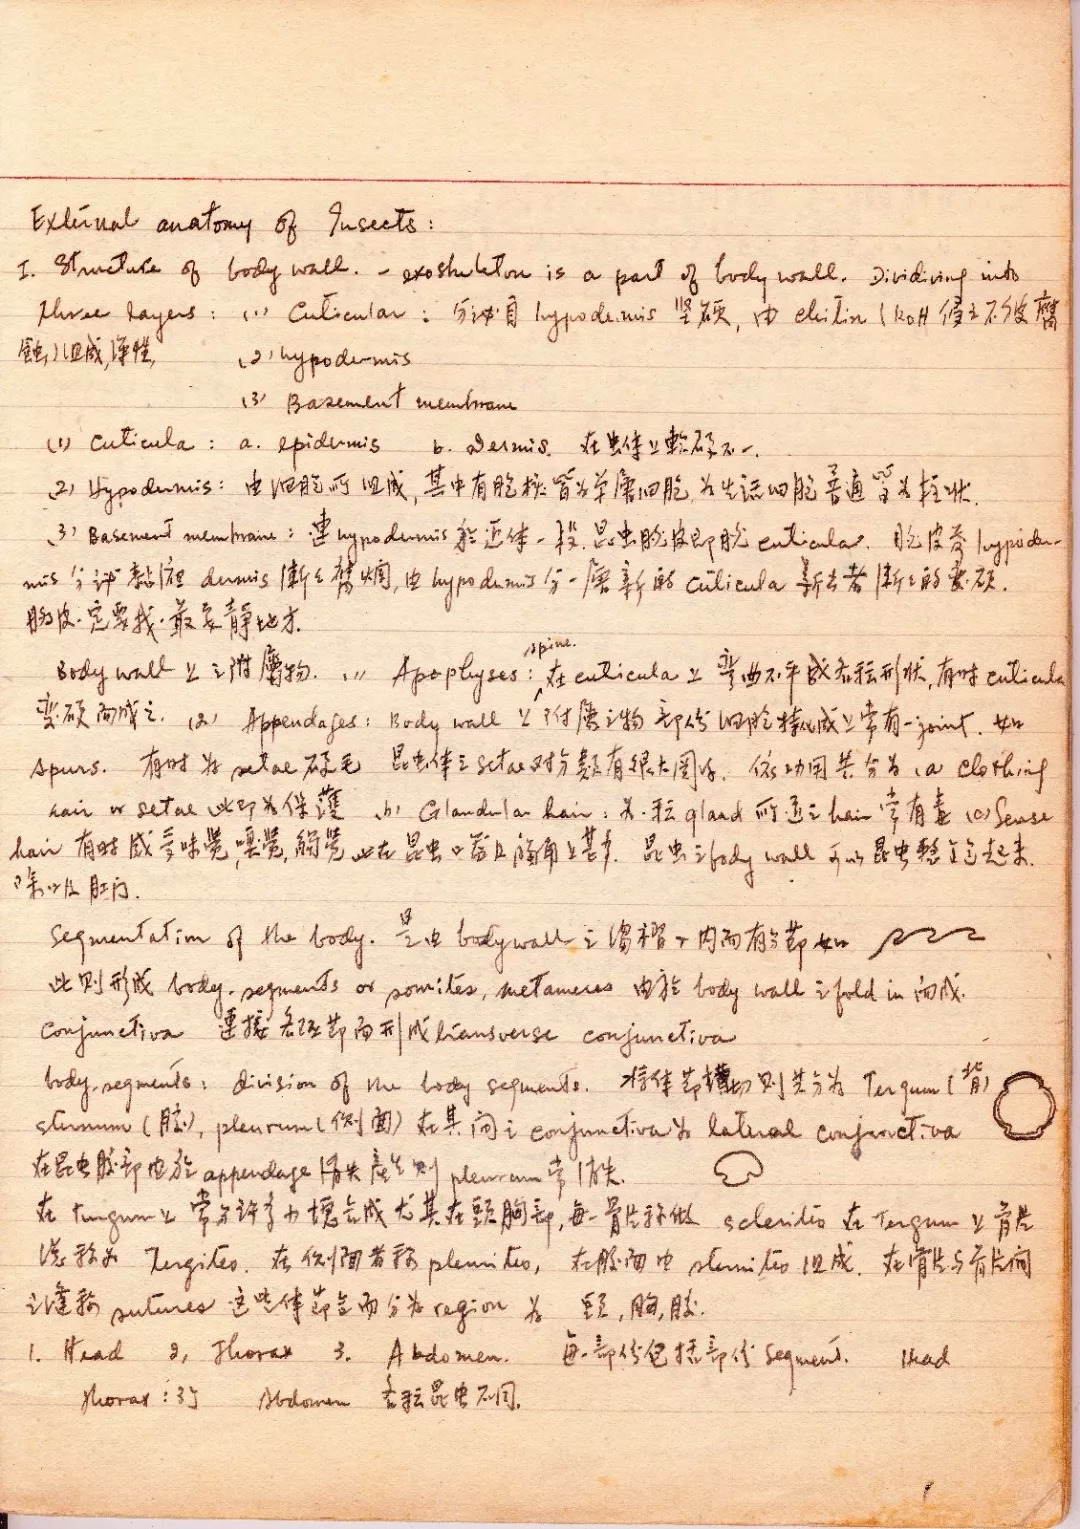 External anatomy of Insects:
I. Structure of body wall. - exoskeleton is a part of body wall. Dividiving into
three layers: (1) Cuticular: 分泌自 hypodermis 坚硬, 由 chitin (KOH 侵之不致腐
蝕) 组成, 弹性,
(2) hypodermis
(3) Basement membrane
(1) Cuticula: a. epidermis b. Dermis. 在虫体上軟硬不一.
(2) Hypodermis: 由细胞所组成, 其中有胞核皆为单層细胞, 为生活细胞普通皆为柱状.
(3) Basement membrane: 連 hypodermis 於近体一投. 昆虫脱皮即脱 cuticular. 脱皮 hypoder-
mis 分泌 dermis 漸之舊, 由 hypodermis 分一層新的 cuticula 新者漸之的变硬.
脱皮一定要找最安静地方.
Body wall 上之附屬物. (1) Apophyses: spine. 在 cuticula 上弯曲不平成各种形状, 有时 cuticula
变硬而成之. (2) Appendages: Body wall 上附屬之物部份细胞特化成上常有一 joint. 如
spurs. 有时为 setae 硬毛 昆虫体之 setae 对分類有很大関係. 依功用共分为 (a) clothing
hair or setae 此即为保護 (b) Glandular hair: 为一种 gland 所通之 hair 常有毒 (c) Sense
hair 有时成味覺, 嗅覺, 觸覺 此在昆虫口器且触角上甚多. 昆虫之 body wall 可以昆虫整个包起来.
除口及肛门.
Segmentation of the body. 是由 body wall 之褶下内而有分節如
此则形成 body-segments or somites, metameres 由於 body wall 之 fold in 而成.
conjunctiva 連接各环節而形成 transverse conjunctiva
body-segments: division of the body segments. 将体節横切则共分为 Tergum (背)
sternum (腹), pleurum (侧面) 在其间之 conjunctiva 为 lateral conjunctiva
在昆虫腹部由於 appendage 消失 则 pleurum 常消失.
在 tergum 上常分许多小塊合成尤其在頭胸部, 每一骨片称做 sclerites 在 Tergum 上骨片
总称为 Tergites. 在侧面者称 pleurites, 在腹面由 sternites 组成. 在骨片与骨片间
之缝称 sutures 这些体節合而分为 region 为 頭, 胸, 腹.
1. Head 2. Thorax 3. Abdomen. 每一部份包括部份 segment. Head
Thorax: 3节 Abdomen 各种昆虫不同.